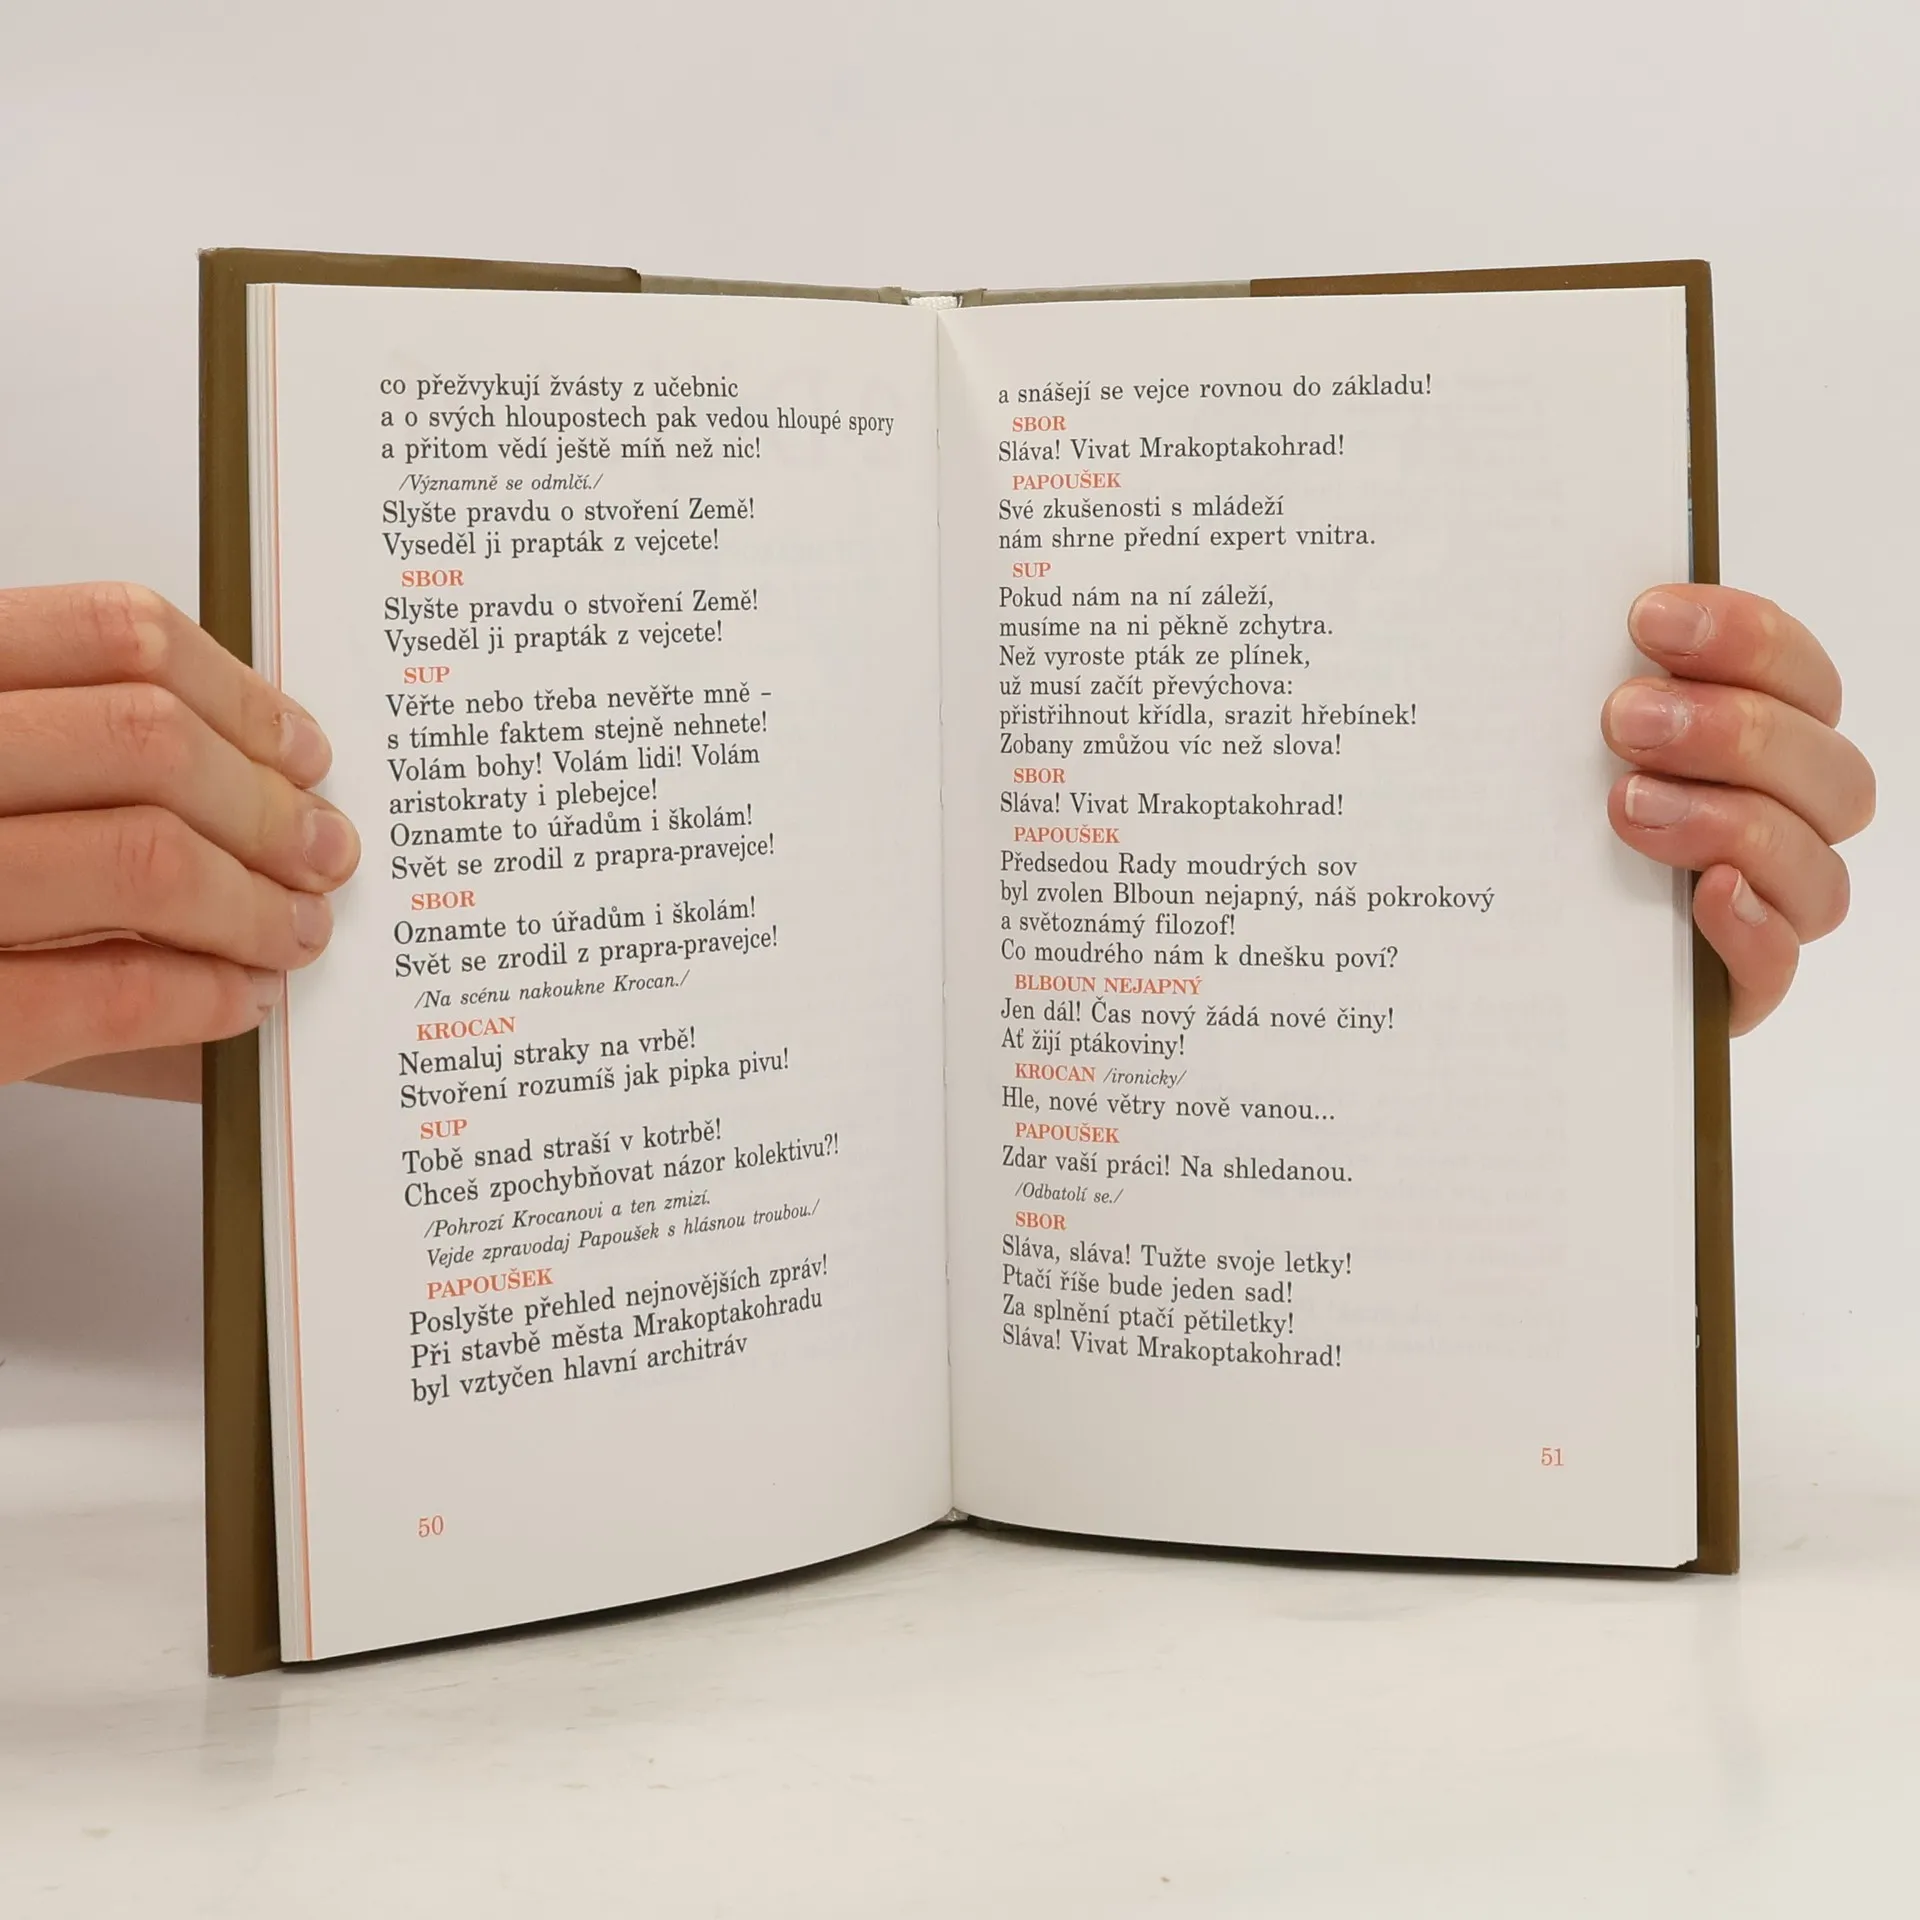 co přežvykují žvásty z učebnic
a o svých hloupostech pak vedou hloupé spory
a přitom vědí ještě míň než nic!
/Významně se odmlčí./
Slyšte pravdu o stvoření Země!
Vyseděl ji prapták z vejcete!
SBOR
Slyšte pravdu o stvoření Země!
Vyseděl ji prapták z vejcete!
SUP
Věřte nebo třeba nevěřte mně –
s tímhle faktem stejně nehnete!
Volám bohy! Volám lidi! Volám
aristokraty i plebejce!
Oznamte to úřadům i školám!
Svět se zrodil z prapra-pravejce!
SBOR
Oznamte to úřadům i školám!
Svět se zrodil z prapra-pravejce!
/Na scénu nakoukne Krocan./
KROCAN
Nemaluj straky na vrbě!
Stvoření rozumíš jak pipka pivu!
SUP
Tobě snad straší v kotrbě!
Chceš zpochybňovat názor kolektivu?!
/Pohrozí Krocanovi a ten zmizí.
Vejde zpravodaj Papoušek s hlásnou troubou./
PAPOUŠEK
Poslyšte přehled nejnovějších zpráv!
Při stavbě města Mrakoptakohradu
byl vztyčen hlavní architráv
50
a snášejí se vejce rovnou do základu!
SBOR
Sláva! Vivat Mrakoptakohrad!
PAPOUŠEK
Své zkušenosti s mládeží
nám shrne přední expert vnitra.
SUP
Pokud nám na ní záleží,
musíme na ni pěkně zchytra.
Než vyroste pták ze plínek,
už musí začít převýchova:
přistřihnout křídla, srazit hřebínek!
Zobany zmůžou víc než slova!
SBOR
Sláva! Vivat Mrakoptakohrad!
PAPOUŠEK
Předsedou Rady moudrých sov
byl zvolen Blboun nejapný, náš pokrokový
a světoznámý filozof!
Co moudrého nám k dnešku poví?
BLBOUN NEJAPNÝ
Jen dál! Čas nový žádá nové činy!
Ať žijí ptákoviny!
KROCAN /ironicky/
Hle, nové větry nově vanou...
PAPOUŠEK
Zdar vaší práci! Na shledanou.
/Odbatolí se./
SBOR
Sláva, sláva! Tužte svoje letky!
Ptačí říše bude jeden sad!
Za splnění ptačí pětiletky!
Sláva! Vivat Mrakoptakohrad!
51